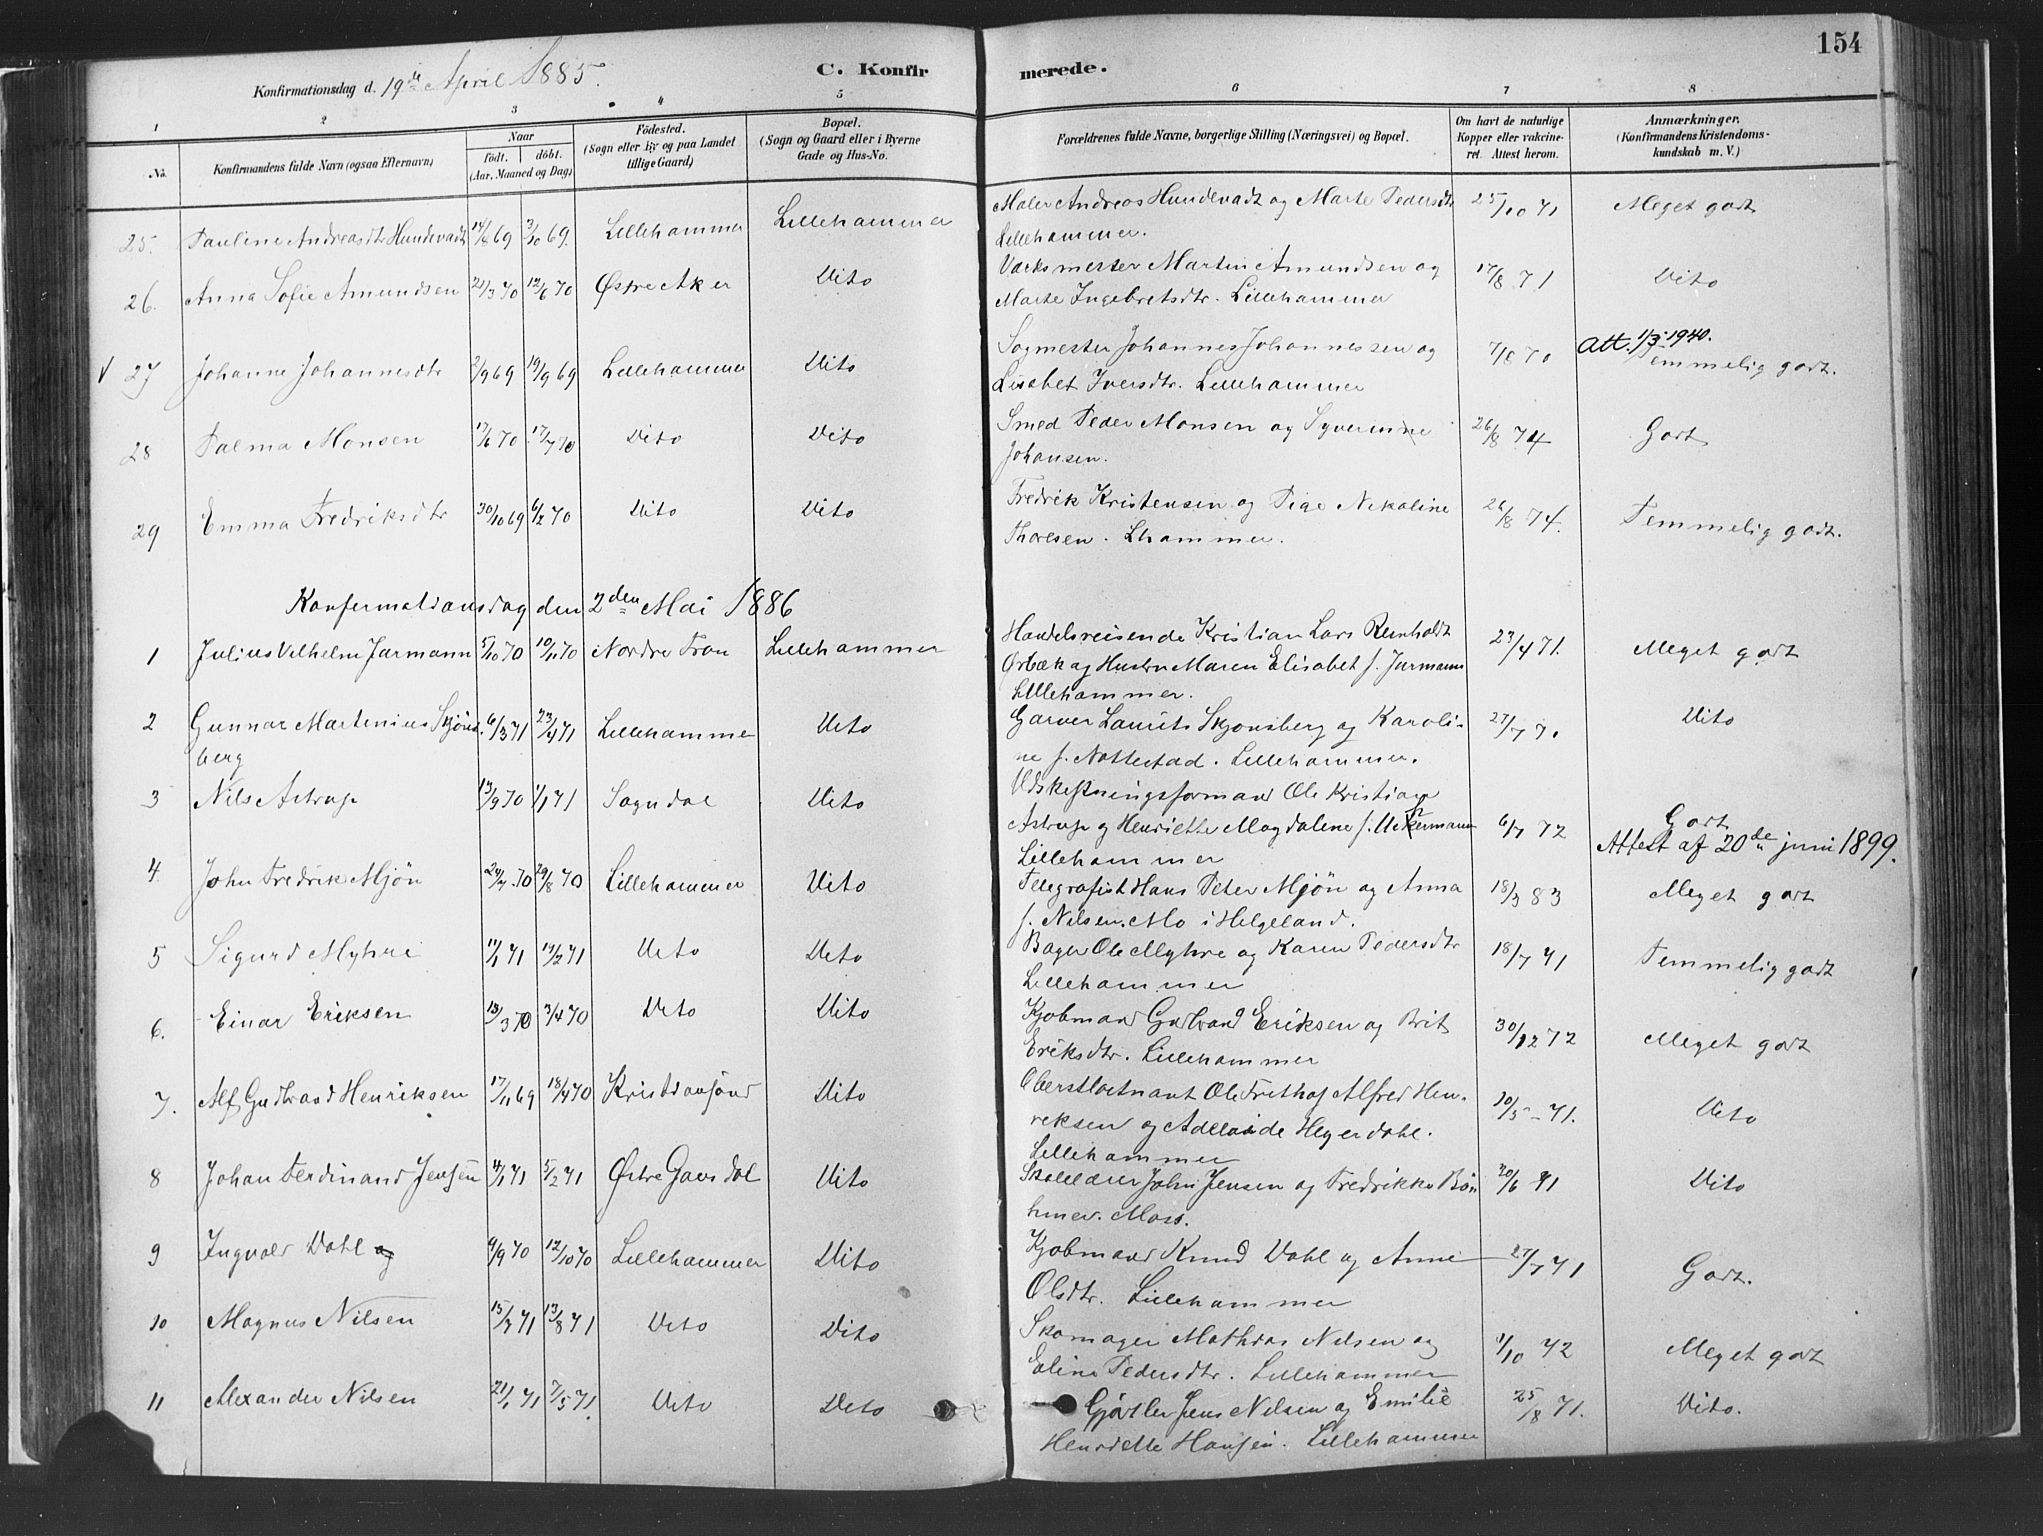 154
Konfirmationsdag d. 19de April 1885.
C. Konfirmerede.
1 2 3 4 5 6 7 8
No. Konfirmandens fulde Navn (ogsaa Efternavn) Naar födt. döbt. (Aar, Maaned og Dag) Födested. (Sogn eller By og paa Landet tillige Gaard) Bopæl. (Sogn og Gaard eller i Byerne Gade og Hus-No. Forældrenes fulde Navne, borgerlige Stilling (Næringsvei) og Bopæl. Om havt de naturlige Kopper eller vakcineret. Attest herom. Anmærkninger. (Konfirmandens Kristendomskundskab m. V.)
25. Pauline Andreasdt Hundevadt 14/8 69 3/10 69. Lillehammer Lillehammer Maler Andreas Hundevadt og Marte Pedersdtr 25/10 71 Meget godt
Lillehammer.
26. Anna Sofie Amundsen 21/3 70 12/6 70 Østre Aker Dito Værksmester Martin Amundsen og 17/8 71 Dito
Marte Ingebretsdtr. Lillehammer
V 27 Johanne Johannesdtr 2/9 69 19/9 69 Lillehammer Dito Sogmester Johannes Johannessen og 7/8 70 Att. 1/3 1940. Temmelig godt.
Lisabet Iversdtr. Lillehammer
28 Palma Monsen 17/6 70 17/7 70 Dito Dito Smed Peder Monsen og Syverinne 26/8 74 Godt
Johansen.
29 Emma Fredriksdtr 30/10 69 6/2 70 Dito Dito Fredrik Kristensen og Pige Nikoline 26/8 74. Temmelig godt.
Thoresen. Lhammer.
Konfermationsdag den 2den Mai 1886
1 Julius Vilhelm Jarmann 5/10 70 10/11 70 Nordre Fron Lillehammer Handelsreisende Kristian Lars Reinholdt 23/4 71. Meget godt
Ørbæk og Hustru Maren Elisabet f. Jarmann
Lillehammer.
2 Gunnar Martinius Skjöns- 6/3 71 23/4 71 Lillehammer Dito Garver Laurits Skjönsberg og Karoli- 27/7 71 Dito
berg ne f. Nottestad. Lillehammer.
3 Nils Astrup 13/9 70 1/1 71 Sogndal Dito Udskiftningsformand Ole Kristian
Astrup og Henriette Magdalene f. Uckermann 6/7 72 Godt
Lillehammer Attest af 20de juni 1899.
4. John Fredrik Mjön 24/7 70 29/8 70 Lillehammer Dito Telegrafist Hans Peter Mjön og Anna 18/3 83 Meget godt
f. Nilsen. Mo i Helgeland.
5 Sigurd Myhre 11/1 71 12/2 71 Dito Dito Bager Ole Myhre og Karen Pedersdtr 18/7 71 Temmelig godt
Lillehammer
6. Einar Eriksen 13/3 70 3/4 70 Dito Dito Kjøbmand Gudbrand Eriksen og Brit 30/12 72 Meget godt
Eriksdtr. Lillehammer
7. Alf Gudbrand Henriksen 17/11 69 18/4 70 Kristiansund Dito Oberstløitnant Ole Frithof Alfred Hen- 30/5 - 71. Dito
reksen og Adelaide Heyerdahl.
Lillehammer
8 Johan Ferdinand Jensen 4/1 71 5/2 71 Østre Gausdal Dito Skolelærer John Jensen og Fredrikke Bön 20/6 71 Dito
hmer. Moss.
9 Ingvald Dahl og 9/9 70 12/10 70 Lillehammer Dito Kjøbmand Knud Dahl og Anne 27/7 71 Godt.
Olsdtr. Lillehammer
10 Magnus Nilsen 15/7 71 13/8 71 Dito Dito Skomager Mathias Nilsen og 1/10 72 Meget godt
Eline Pedersdtr. Lillehammer
11 Alexander Nilsen 21/1 71 7/5 71. Dito Dito Gjørtler Jens Nilsen og Emilie 25/8 71. Dito.
Henriette Hansen. Lillehammer